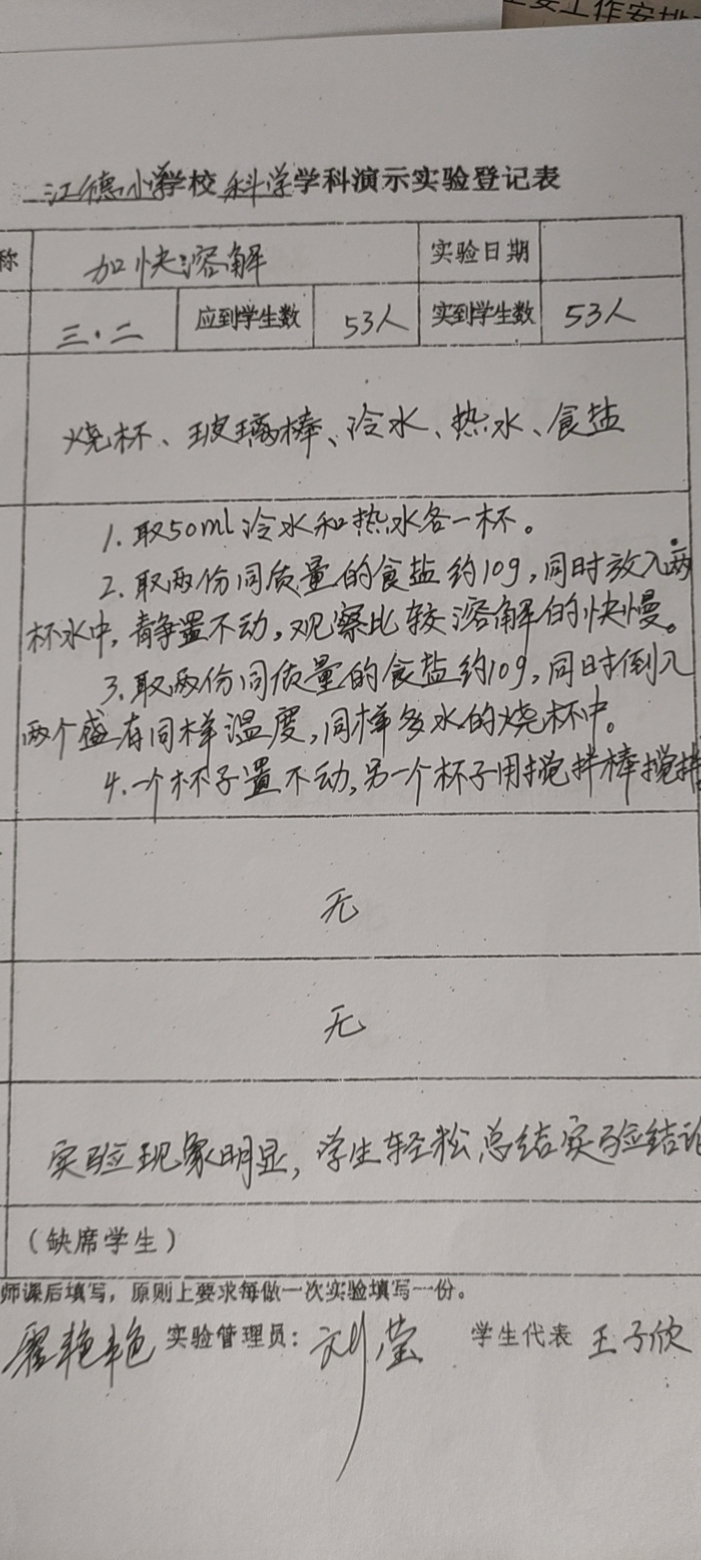 江德小学学校科学学科演示实验登记表
称 加快溶解 实验日期
三·二 应到学生数 53人 实到学生数 53人
烧杯、玻璃棒、冷水、热水、食盐
1.取50ml冷水和热水各一杯。
2.取两份同质量的食盐约10g,同时放入两
杯水中,静置不动,观察比较溶解的快慢。
3.取两份同质量的食盐约10g,同时倒入
两个盛有同样温度,同样多水的烧杯中。
4.一个杯子置不动,另一个杯子用搅拌棒搅拌
无
无
实验现象明显,学生轻松总结实验结论
(缺席学生)
师课后填写,原则上要求每做一次实验填写一份。
艳艳 实验管理员:刘莹 学生代表 王子欣